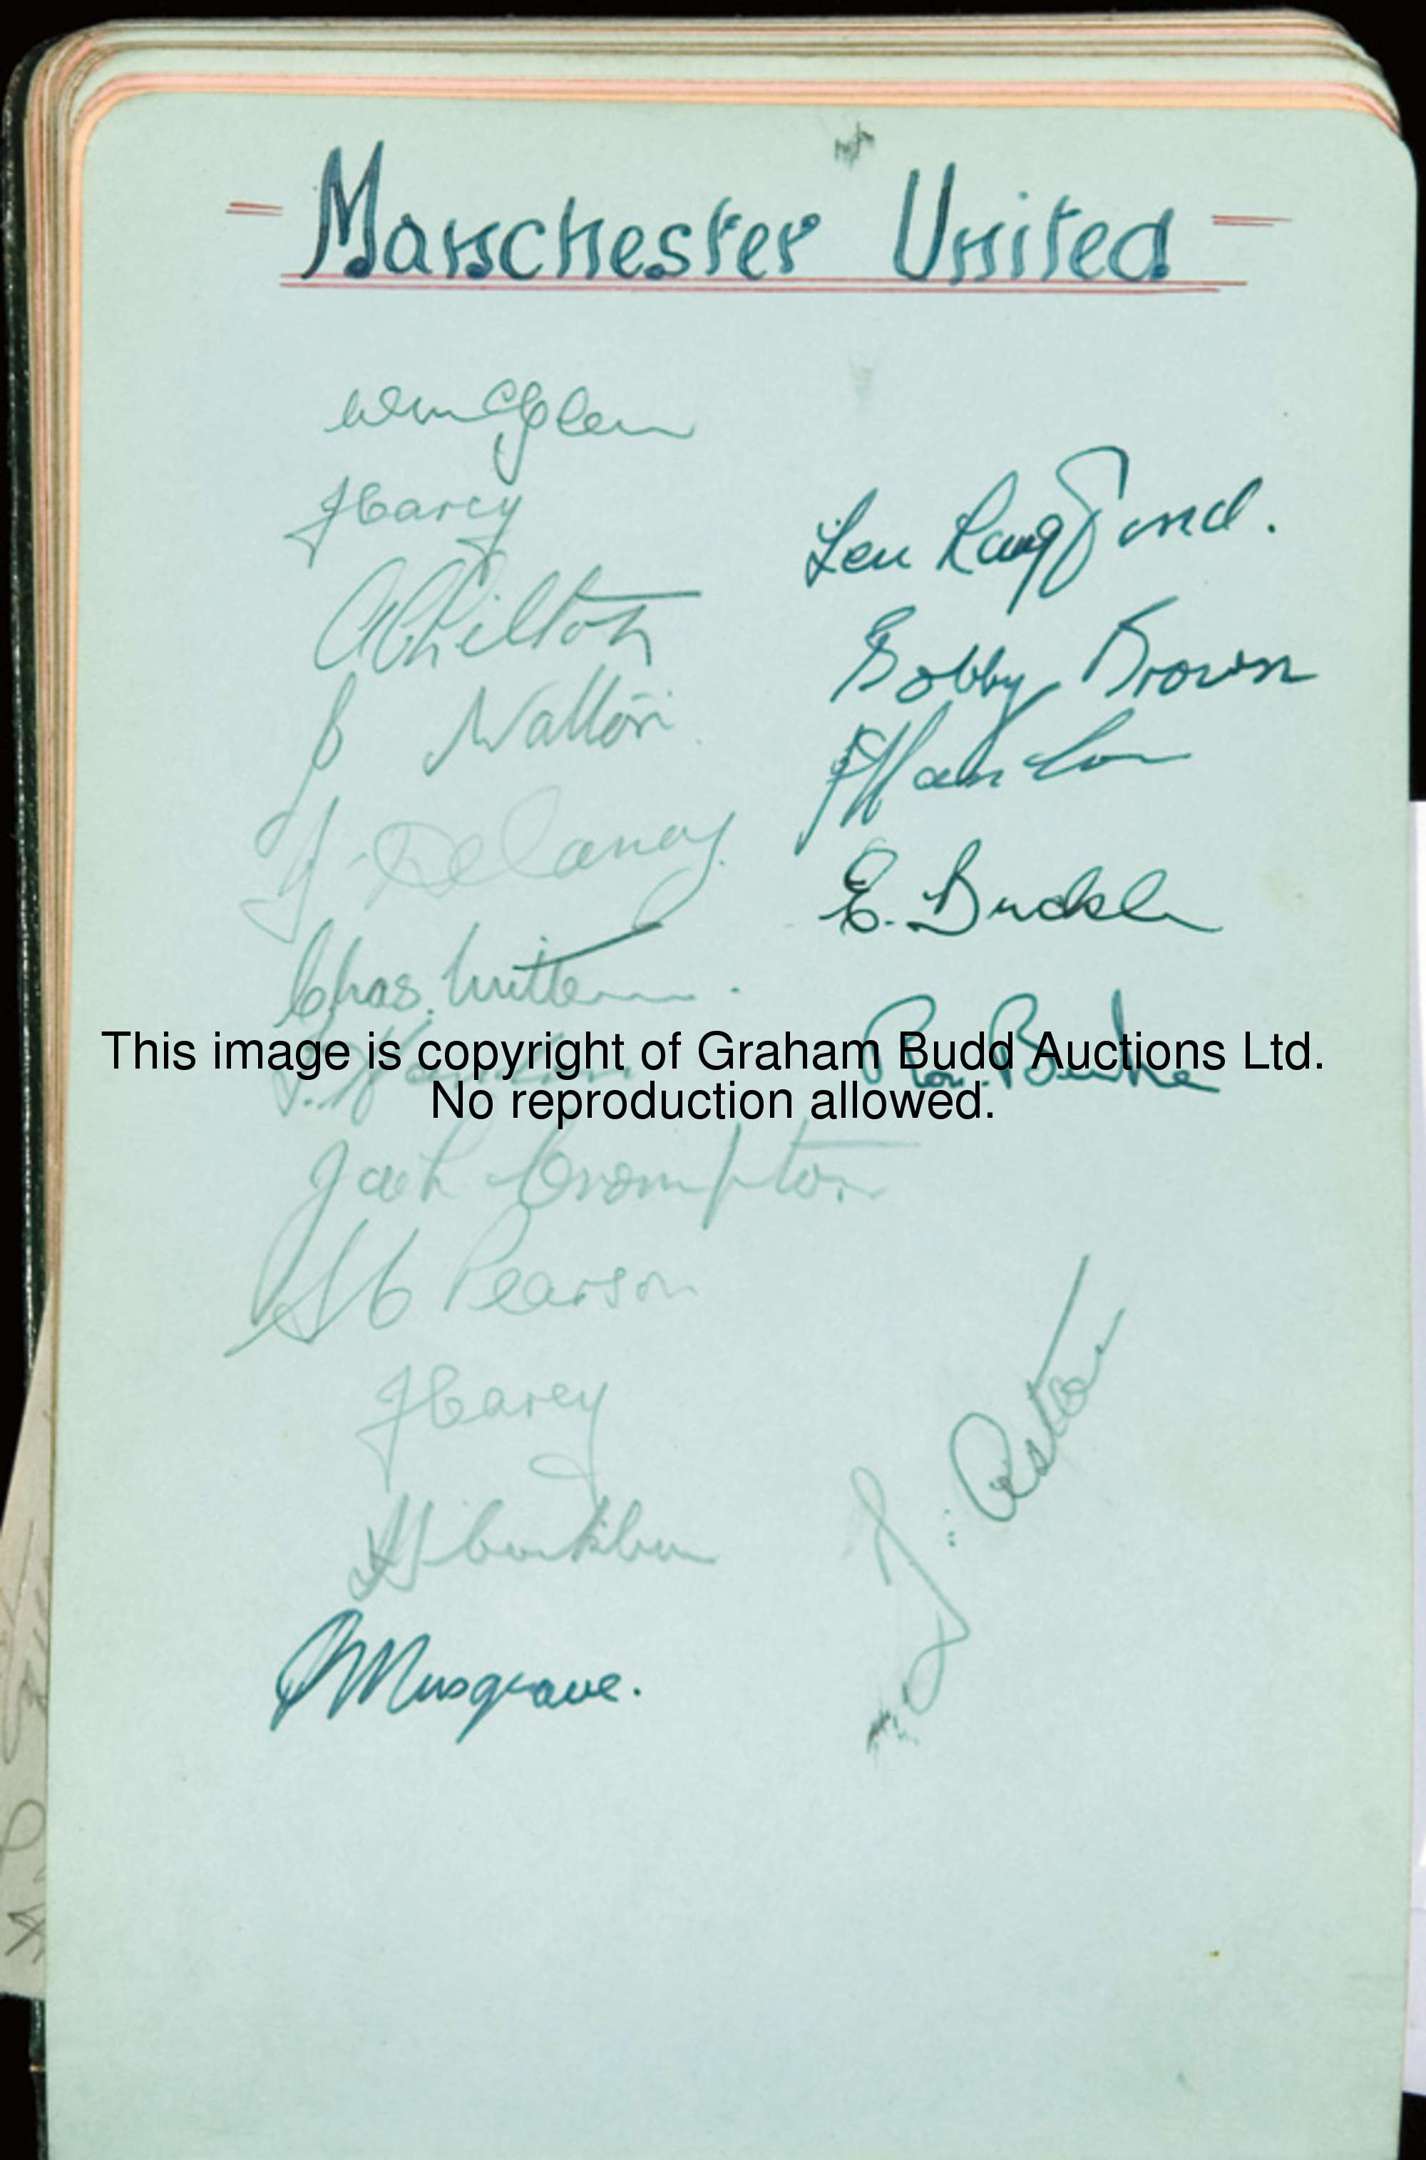 Manchester United
Wm McGlen
J Carey
A Chilton
J Walton
J. Delaney
Chas. Mitten.
J. Hanlon
Jack Crompton
S C Pearson
J Carey
H Cockburn
J Musgrave.
Len Langford.
Bobby Brown
J Hanlon
E. Buckle
Ron. Burke
J. Aston
This image is copyright of Graham Budd Auctions Ltd.
No reproduction allowed.